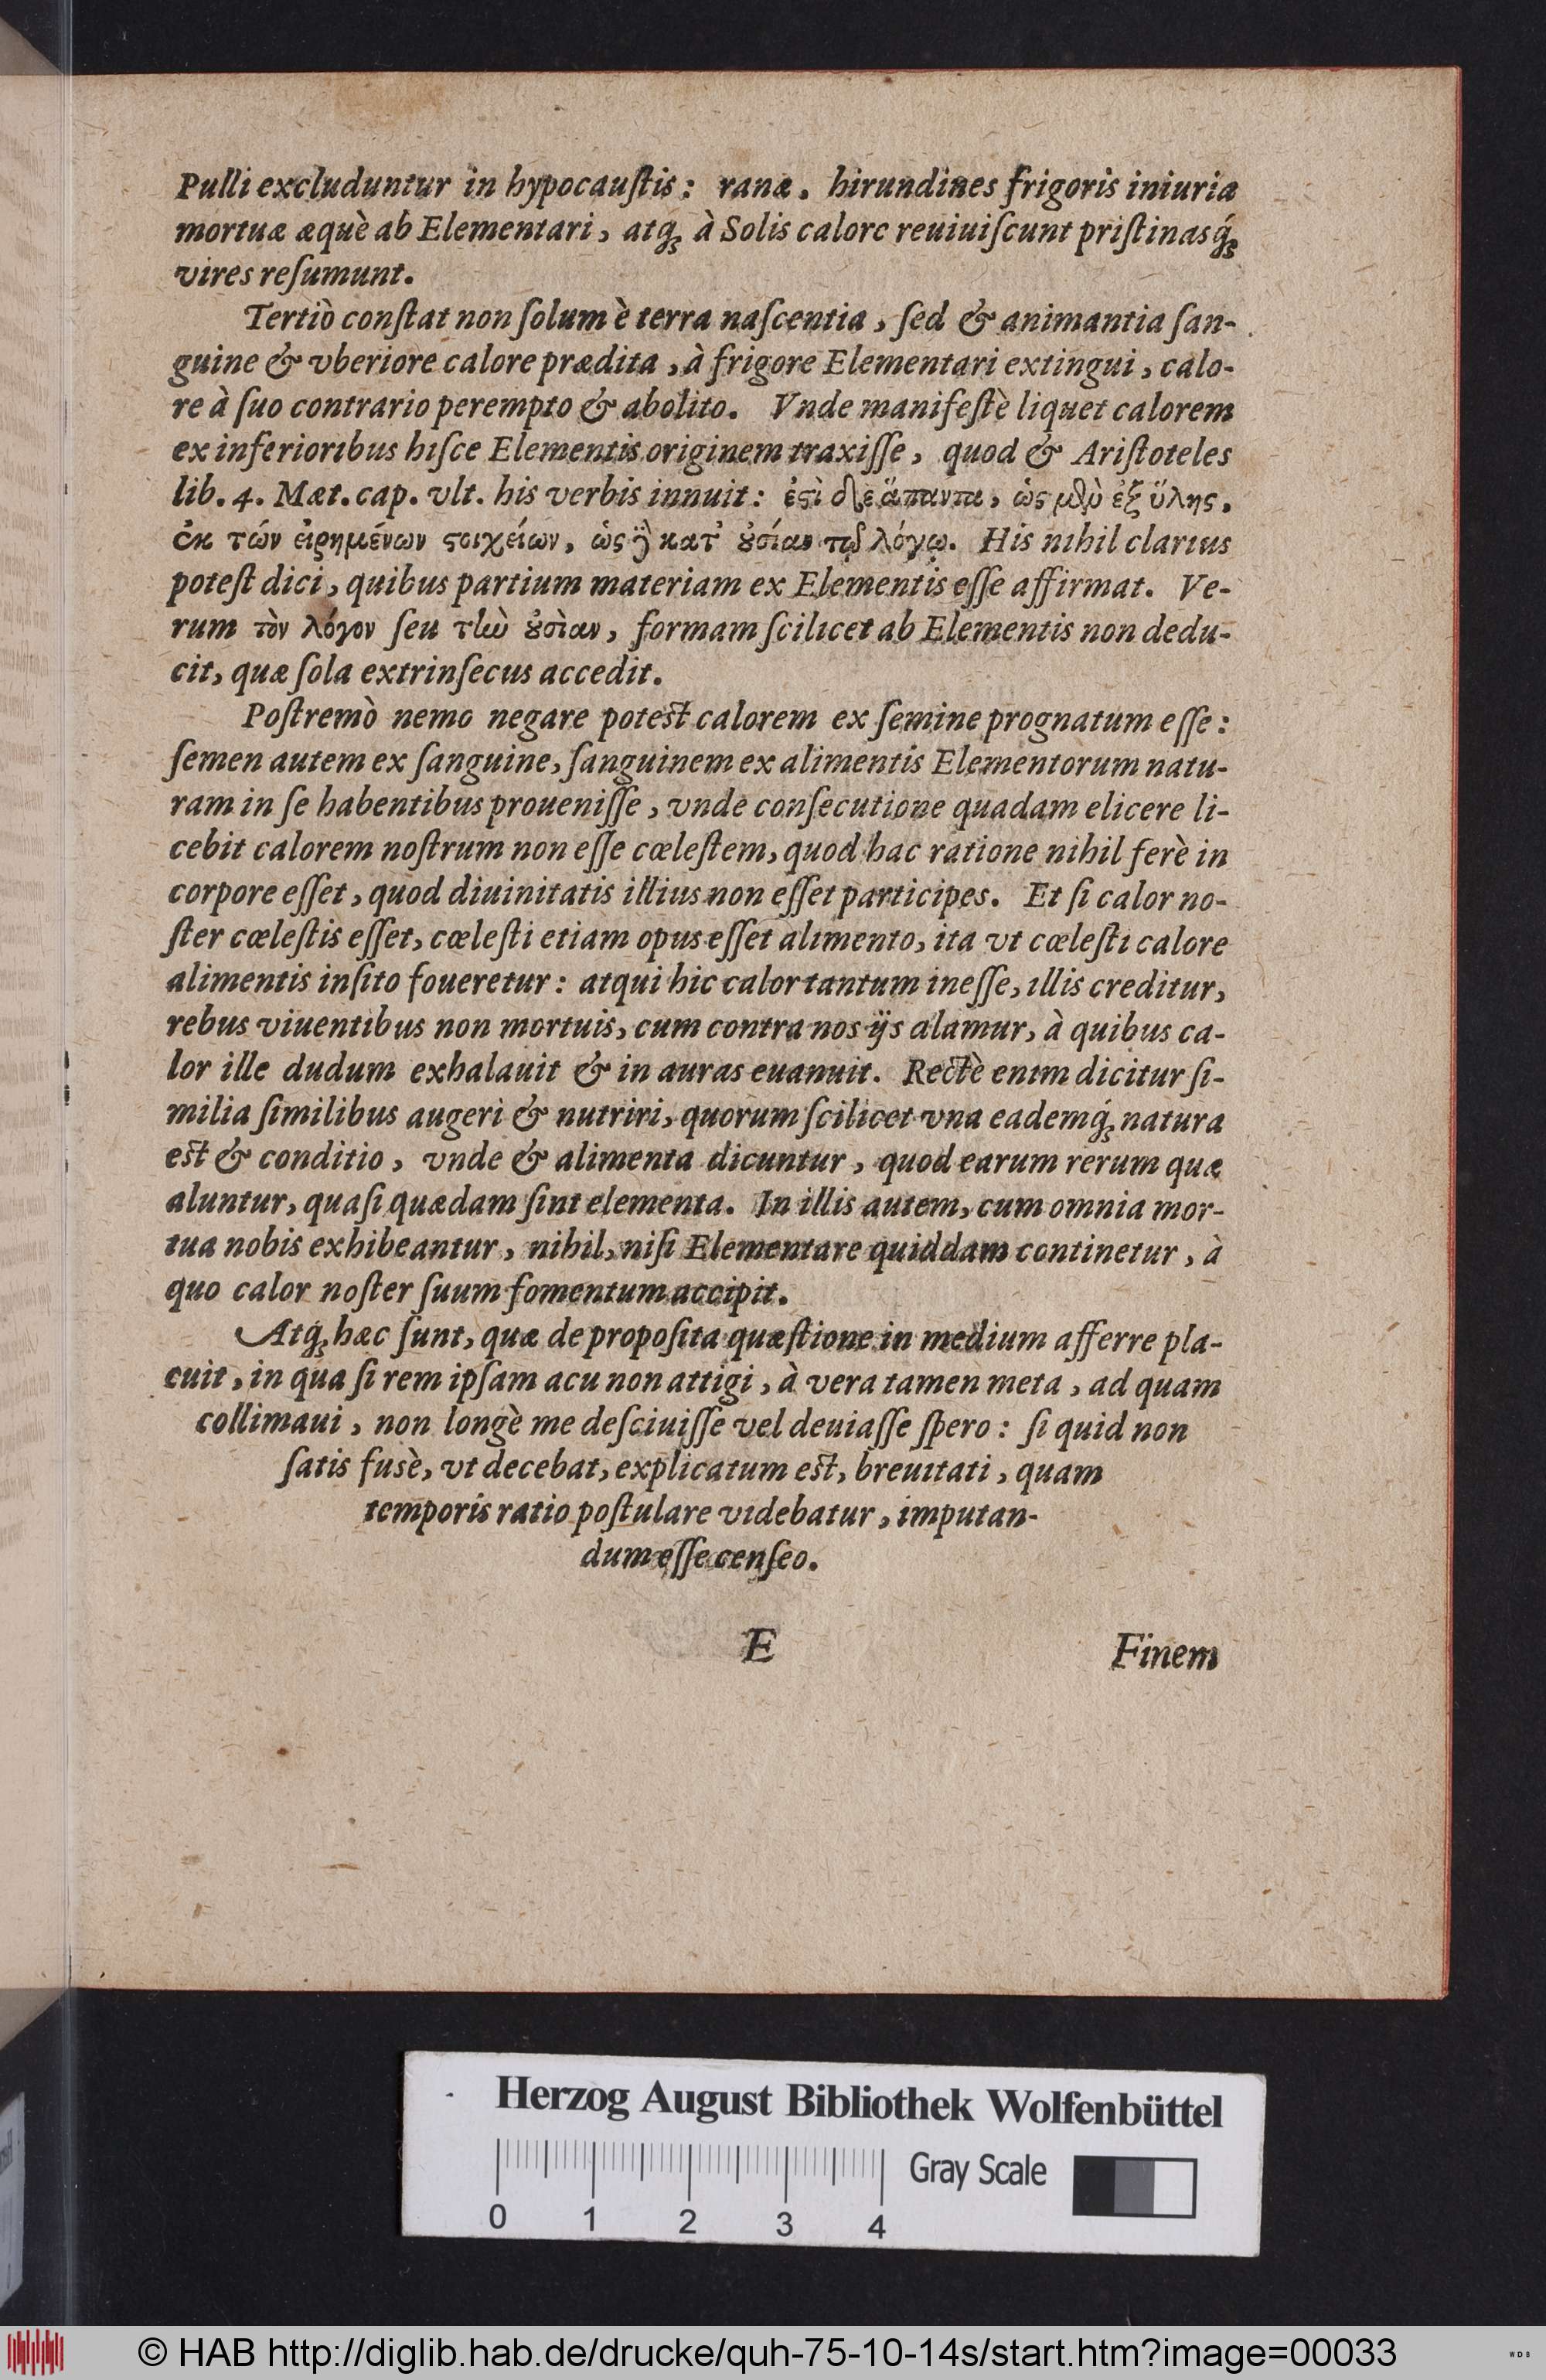 Pulli excluduntur in hypocauſtis: ranæ. hirundines frigoris iniuria
mortuæ æquè ab Elementari, atq́; à Solis calore reuiuiſcunt priſtinasq́;
vires reſumunt.
Tertiò conſtat non ſolum è terra naſcentia, ſed & animantia ſan-
guine & vberiore calore prædita, à frigore Elementari extingui, calo-
re à ſuo contrario perempto & abolito. Vnde manifeſtè liquet calorem
ex inferioribus hiſce Elementis originem traxiſſe, quod & Ariſtoteles
lib. 4. Mæt. cap. vlt. his verbis innuit: ἐϛὶ δὲ ἅπαντα, ὡς μὲν ἐξ ὕλης,
ἐκ τῶν εἰρημένων ϛοιχείων, ὡς δὲ κατ᾽ ȣσίαν τῷ λόγῳ. His nihil clarius
poteſt dici, quibus partium materiam ex Elementis eſſe affirmat. Ve-
rum τὸν λόγον ſeu τὴν ȣσίαν, formam ſcilicet ab Elementis non dedu-
cit, quæ ſola extrinſecus accedit.
Poſtremò nemo negare poteſt calorem ex ſemine prognatum eſſe:
ſemen autem ex ſanguine, ſanguinem ex alimentis Elementorum natu-
ram in ſe habentibus proueniſſe, vnde conſecutione quadam elicere li-
cebit calorem noſtrum non eſſe cœleſtem, quod hac ratione nihil ferè in
corpore eſſet, quod diuinitatis illius non eſſet particips. Et ſi calor no-
ſter cœleſtis eſſet, cœleſti etiam opus eſſet alimento, ita vt cœleſti calore
alimentis inſito foueretur: atqui hic calor tantum ineſſe, illis creditur,
rebus viuentibus non mortuis, cum contra nos ijs alamur, à quibus ca-
lor ille dudum exhalauit & in auras euanuit. Rectè enim dicitur ſi-
milia ſimilibus augeri & nutriri, quorum ſcilicet vna eademq́; natura
eſt & conditio, vnde & alimenta dicuntur, quod earum rerum quæ
aluntur, quaſi quædam ſint elementa. In illis autem, cum omnia mor-
tua nobis exhibeantur, nihil, niſi Elementare quiddam continetur, à
quo calor noſter ſuum fomentum accipit.
Atq́; hæc ſunt, quæ de propoſita quæſtione in medium afferre pla-
cuit, in qua ſi rem ipſam acu non attigi, à vera tamen meta, ad quam
collimaui, non longè me deſciuiſſe vel deuiaſſe ſpero: ſi quid non
ſatis fusè, vt decebat, explicatum eſt, breuitati, quam
temporis ratio poſtulare videbatur, imputan-
dum eſſe cenſeo.
E Finem
Herzog August Bibliothek Wolfenbüttel
Gray Scale
0 1 2 3 4
© HAB http://diglib.hab.de/drucke/quh-75-10-14s/start.htm?image=00033